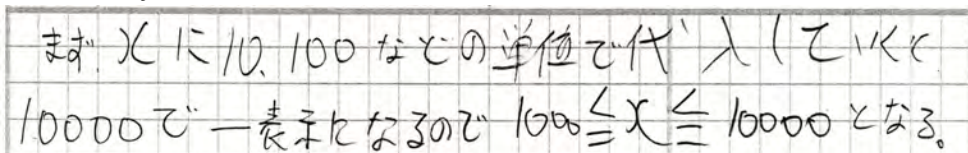 まず、xに10、100などの単位で代入していくと
10000で一表示になるので 1000≦x≦10000となる。